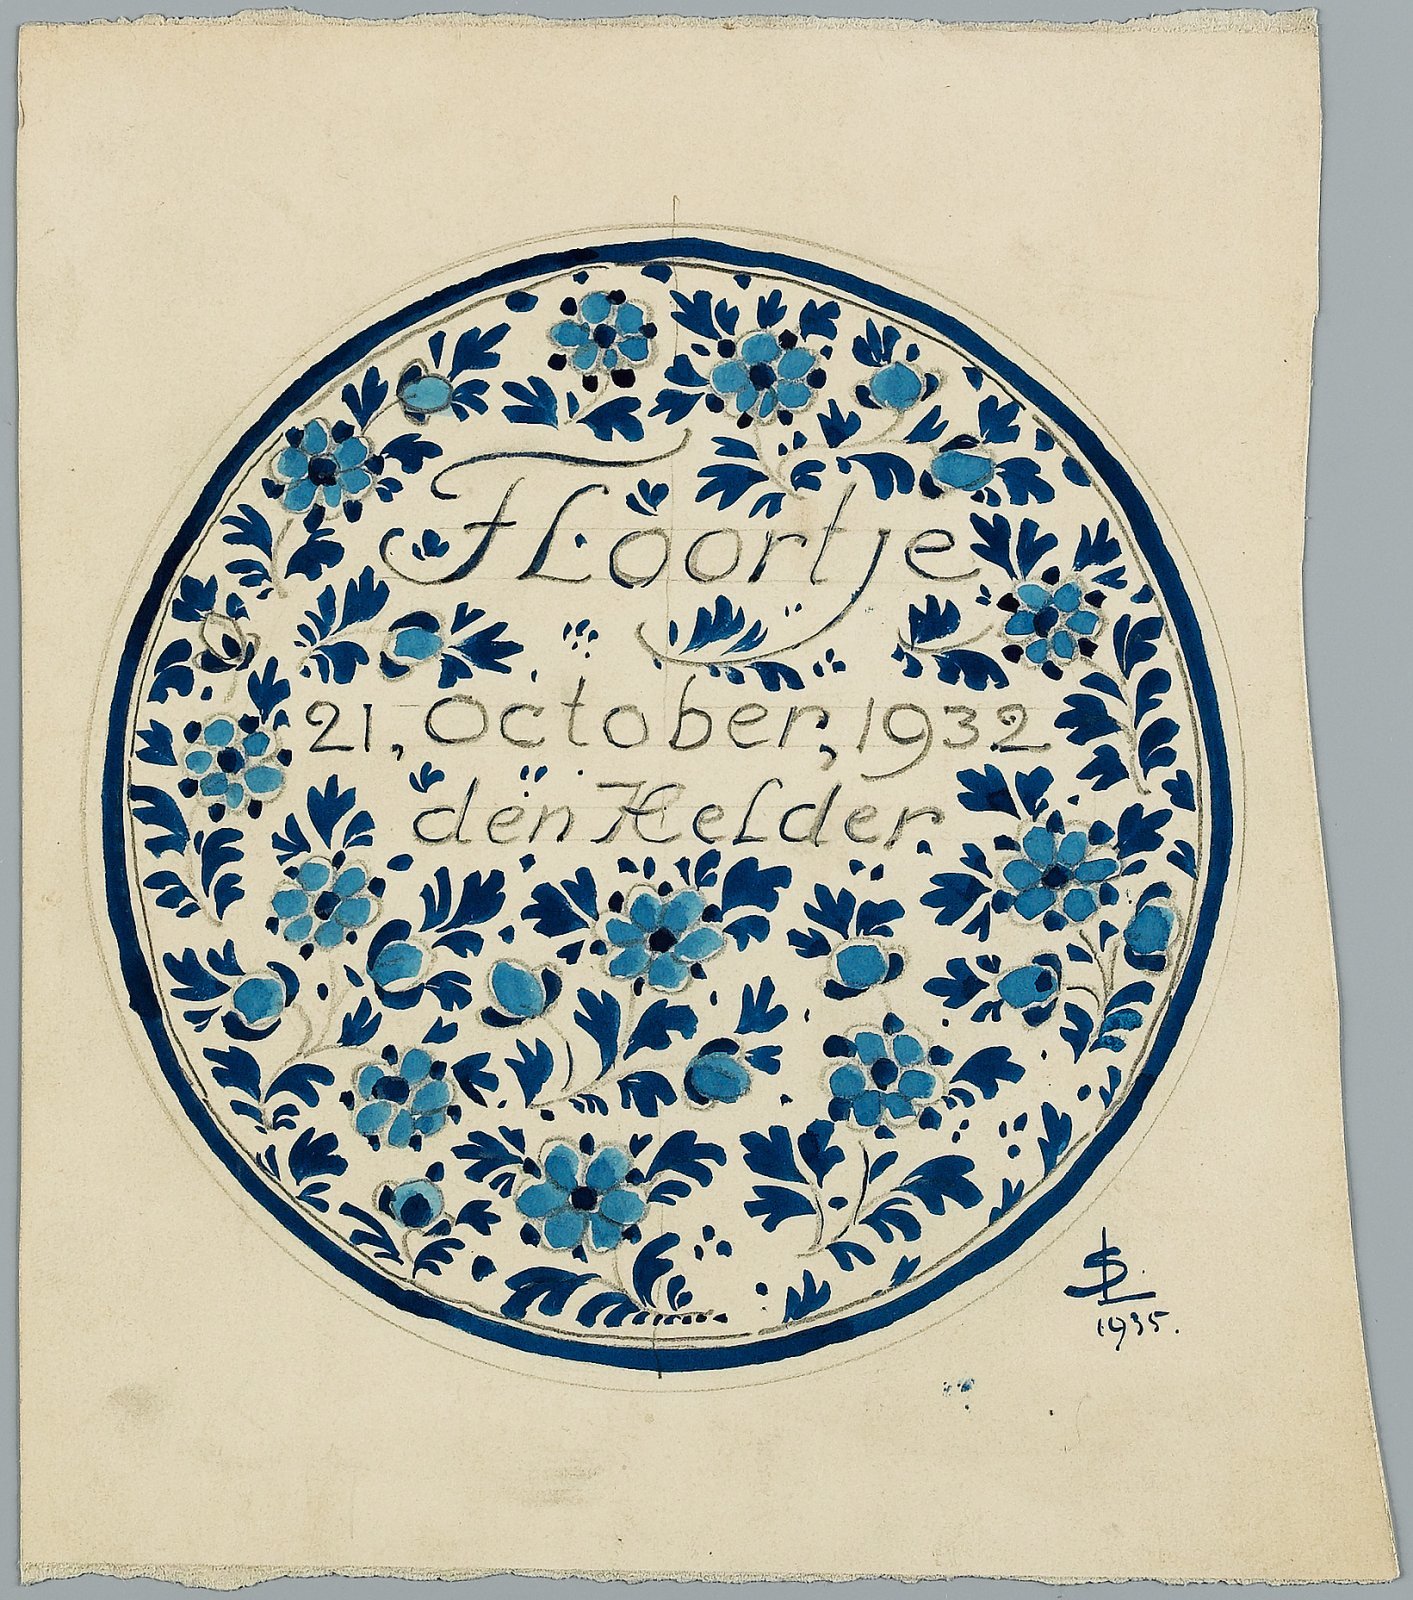 Floortje
21, october, 1932
den Helder
SL
1935.